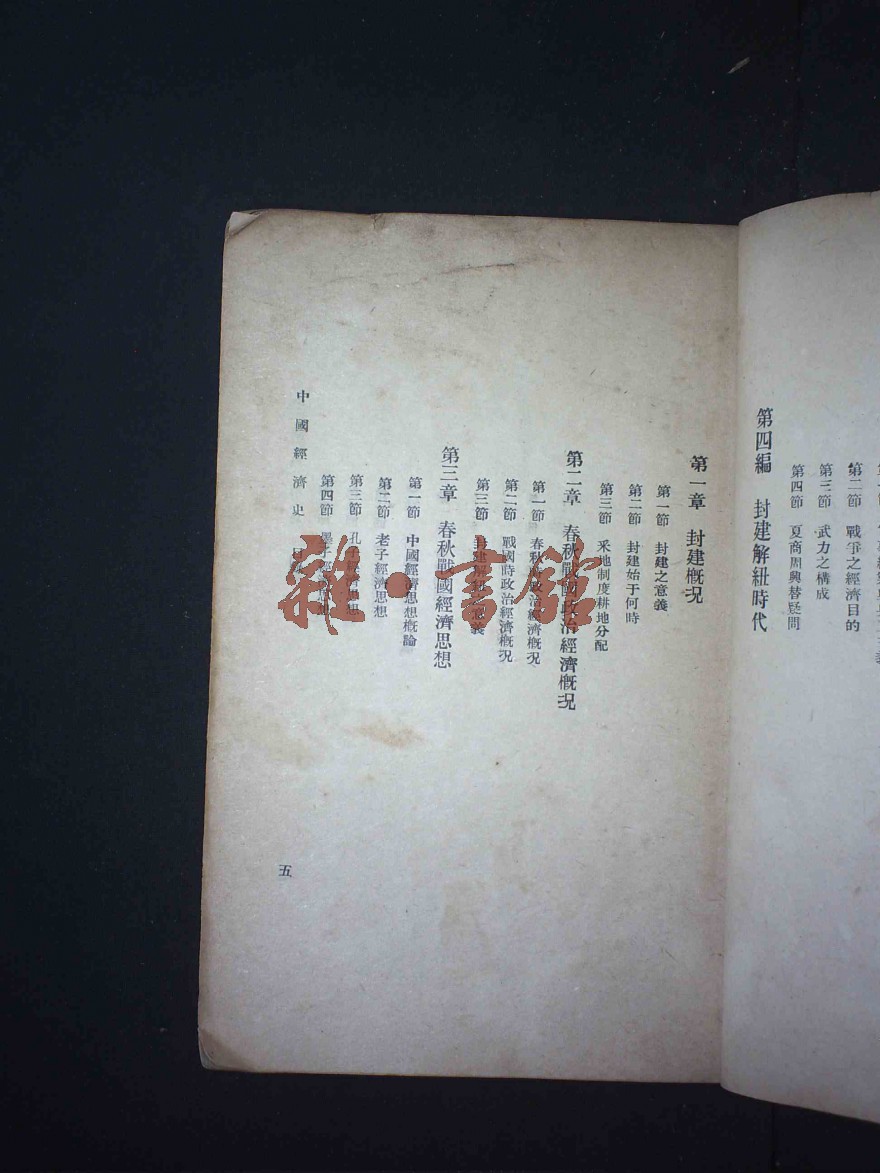 第二節 戰爭之經濟目的
第三節 武力之構成
第四節 夏商周興替疑問
第四編 封建解紐時代
第一章 封建槪况
第一節 封建之意義
第二節 封建始于何時
第三節 釆地制度耕地分配
第二章 春秋戰國政治經濟槪况
第一節 春秋時政治經濟槪况
第二節 戰國時政治經濟槪况
第三節 封建解紐之意義
第三章 春秋戰國經濟思想
第一節 中國經濟思想槪論
第二節 老子經濟思想
第三節 孔子經濟思想
第四節 墨子經濟思想
中國經濟史
五
雜·書館